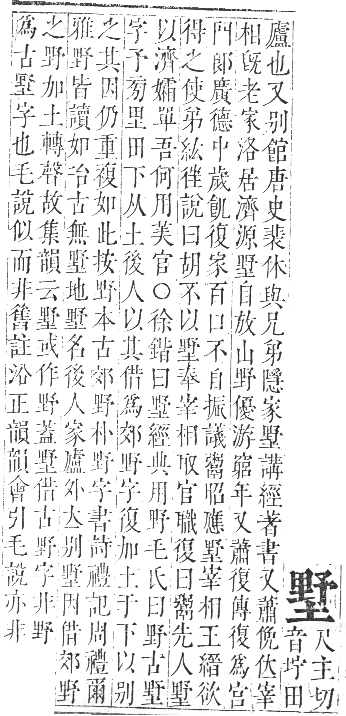 墅
尺主切
音坾田
廬也又別館唐史裴休與兄弟隱家墅講經著書又蕭俛伏宰
相旣老家洛居濟源墅自放山野優游窮年又蕭復傳復爲官
門郞廣德中歲飢復家百口不自振議鬻昭應墅宰相王縉欲
得之使弟紘徃說曰胡不以墅奉宰相取官職復曰鬻先人墅
以濟孀單吾何用美官○徐鍇曰墅經典用野毛氏曰野古墅
字予旁里田下从土後人以其借爲郊野字復加土于下以別
之其因仍重複如此按野本古郊野朴野字書詩禮記周禮爾
雅野皆讀如冶古無墅地墅名後人家廬外大別墅因借郊野
之野加土轉聲故集韻云墅或作野蓋墅借古野字非野
爲古墅字也毛說似而非舊註㳂正韻韻會引毛說亦非